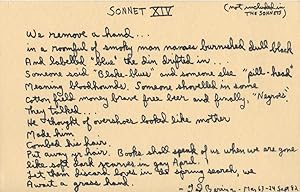 SONNET XIV
(not included in
THE SONNETS)
We remove a hand...
in a roomful of smoky man names burnished dull black
And labelled "blue" the din drifted in...
Someone said "Blake-blues" and someone else "pill-head"
Meaning bloodhounds. Someone shovelled in some
Cotton field money brave free beer and finally, "Negroes"
They talked
He thought of overshoes looked like mother
Made him
Combed his hair.
Put away your hair. Books shall speak of us when we are gone
like soft dark scarves in gay April.
Let them discard loves in the spring search, we
Await a grass hand.